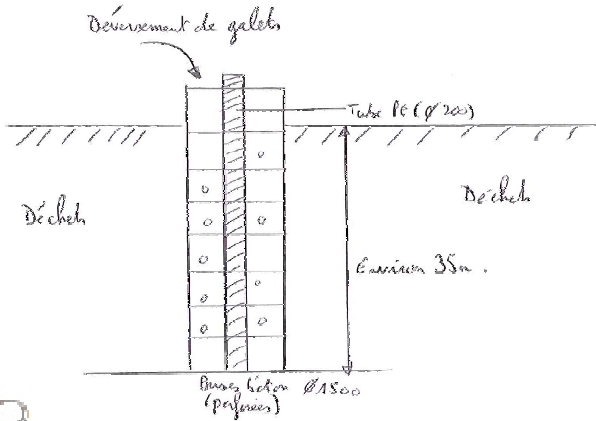 Déversement de galets
Tube PE (Ø 200)
Déchets
Déchets
Environ 35m.
Buses béton Ø1500
(perforées)